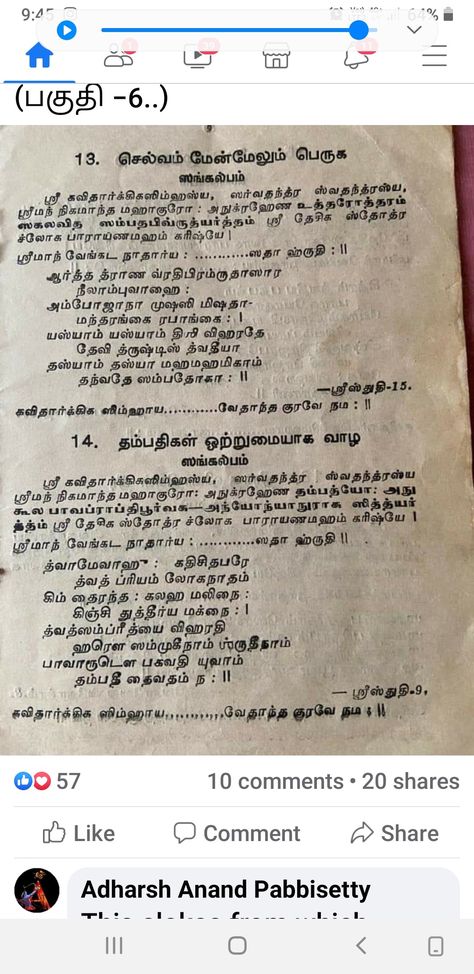 9:45
64%
(பகுதி –6..)
9
13. செல்வம் மேன்மேலும் பெருக
ஸங்கல்பம்
ஸ்ரீ கவிதார்க்கிகஸிம்ஹஸ்ய, ஸர்வதந்த்ர ஸ்வதந்த்ரஸ்ய,
ஸ்ரீமந் நிகமாந்த மஹாகுரோ : அநுக்ரஹேண உத்தரோத்தரம்
ஸகலவித ஸம்பதபிவ்ருத்யர்த்தம் ஸ்ரீ தேசிக ஸ்தோத்ர
ச்லோக பாராயணமஹம் கரிஷ்யே |
ஸ்ரீமாந் வேங்கட நாதார்ய : ............ஸதா ஹ்ருதி : ||
ஆர்த்த த்ராண வ்ரதிபிரம்ருதாஸார
நீலாம்புவாஹை :
அம்போஜாநா முஷஸி மிஷதா-
மந்தரங்கை ரபாங்கை : |
யஸ்யாம் யஸ்யாம் திசி விஹரதே
தேவி த்ருஷ்டிஸ் த்வதீயா
தஸ்யாம் தஸ்யா மஹமஹமிகாம்
தந்வதே ஸம்பதோகா : ||
—ஸ்ரீஸ்துதி-15.
கவிதார்க்கிக ஸிம்ஹாய............வேதாந்த குரவே நம : ||
14. தம்பதிகள் ஒற்றுமையாக வாழ
ஸங்கல்பம்
ஸ்ரீ கவிதார்க்கிகஸிம்ஹஸ்ய, ஸர்வதந்த்ர ஸ்வதந்த்ரஸ்ய
ஸ்ரீமந் நிகமாந்த மஹாகுரோ: அநுக்ரஹேண தம்பத்யோ: அநு
கூல பாவப்ராப்திபூர்வக—அந்யோந்யாநுராக ஸித்த்யர்
த்தம் ஸ்ரீ தேசிக ஸ்தோத்ர ச்லோக பாராயணமஹம் கரிஷ்யே |
ஸ்ரீமாந் வேங்கட நாதார்ய : ............ஸதா ஹ்ருதி ||
த்வாமேவாஹு : கதிசிதபரே
த்வத் ப்ரியம் லோகநாதம்
கிம் தைரந்த : கலஹ மலிநை :
கிஞ்சி துத்தீர்ய மக்நை : |
த்வத்ஸம்ப்ரீத்யை விஹரதி
ஹரௌ ஸம்முகீநாம் ஶ்ருதீநாம்
பாவாரூடௌ பகவதி யுவாம்
தம்பதீ தைவதம் ந : ||
— ஸ்ரீஸ்துதி-9,
கவிதார்க்கிக ஸிம்ஹாய............வேதாந்த குரவே நம : ||
57
10 comments • 20 shares
Like Comment Share
Adharsh Anand Pabbisetty
This slokas from which